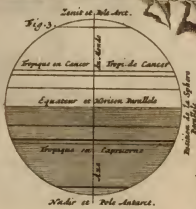 Zenit et Pole Arct.
Fig. 3.
Tropique en Cancer Tropi de Cancer
Equateur et Horison Parallels
Tropique en Capricorne
Axe
Nadir et Pole Antarct.
Position de la Sphere
Parallele